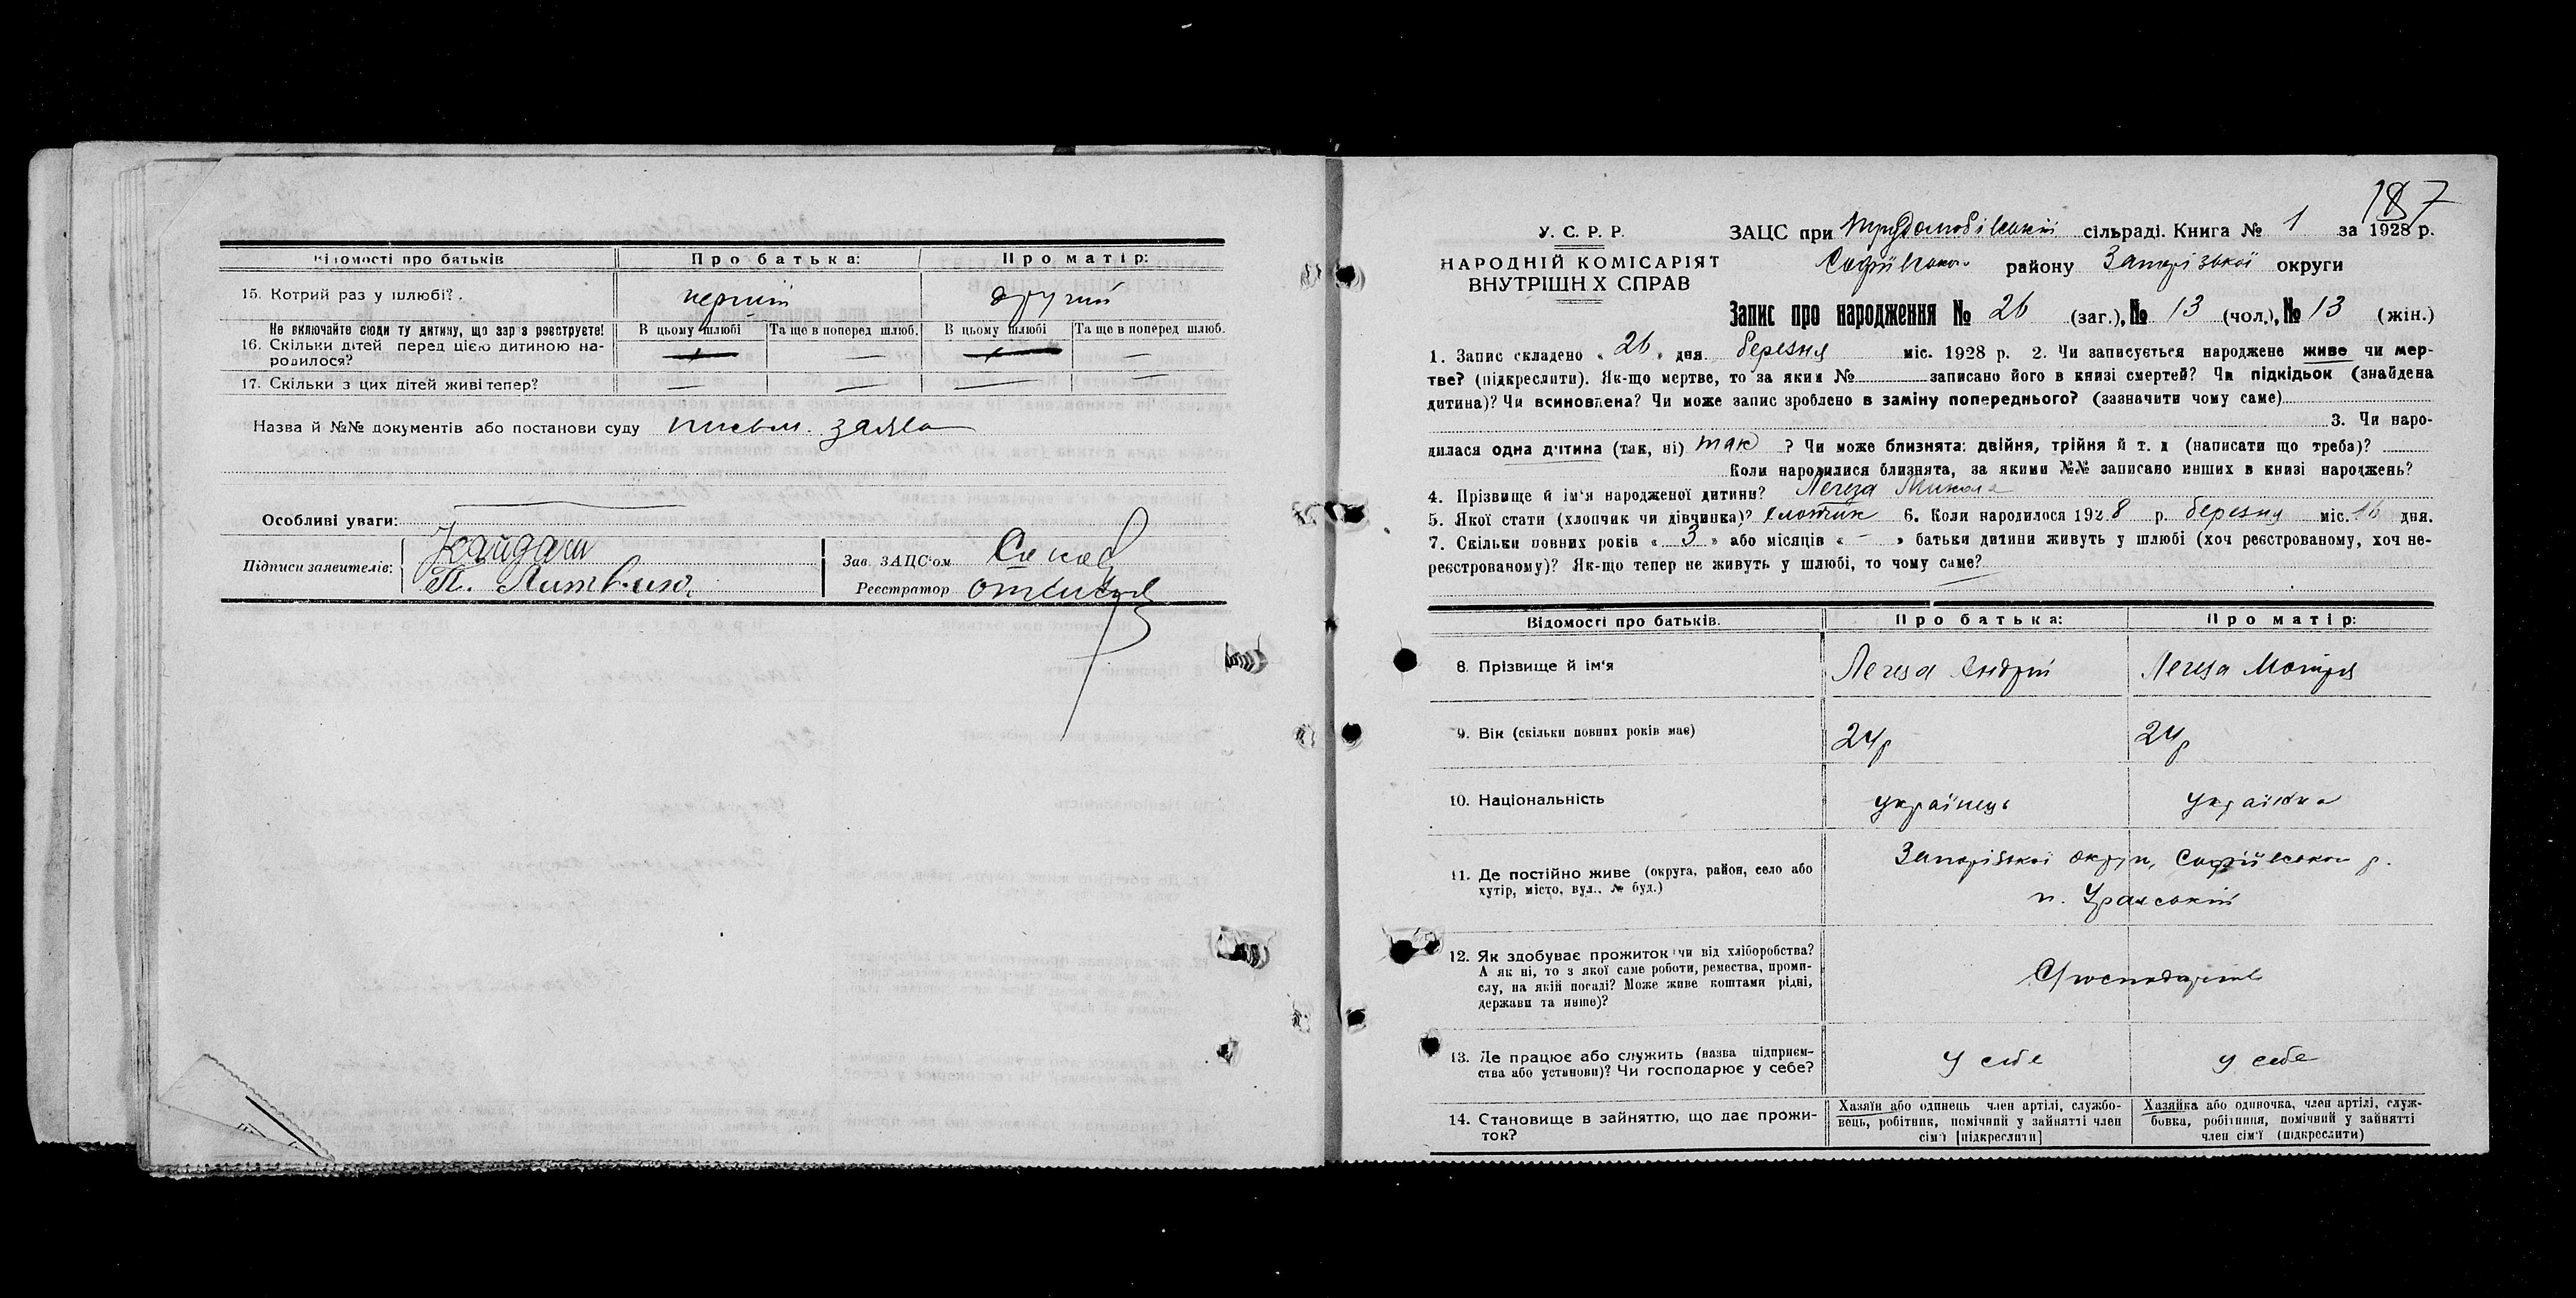 Відомості про батьків Про батька: Про матір:
15. Котрий раз у шлюбі? перший другий
Не включайте сюди ту дитину, що зараз реєструєте! В цьому шлюбі Та ще в поперед шлюб. В цьому шлюбі Та ще в поперед шлюб.
16. Скільки дітей перед цією дитиною на-
родилося? — — — —
17. Скільки з цих дітей живі тепер? — — — —
Назва й №№ документів або постанови суду письм. заява
Особливі уваги:
Підписи заявителів: Кайдаш
П. Литвин
Зав. ЗАЦС'ом
Реєстратор
187
У. С. Р. Р.
НАРОДНІЙ КОМІСАРІЯТ
ВНУТРІШН Х СПРАВ
ЗАЦС при Трудолюбівській сільраді. Книга № 1 за 1928 р.
Софіївського району Запорізької округи
Запис про народження № 26 (заг.), № 13 (чол.), № 13 (жін.)
1. Запис складено « 26 » дня березня міс. 1928 р. 2. Чи записується народжене живе чи мер-
тве? (підкреслити). Як-що мертве, то за яким № записано його в книзі смертей? Чи підкідьок (знайдена
дитина)? Чи всиновлена? Чи може запис зроблено в заміну попереднього? (зазначити чому саме)
3. Чи наро-
дилася одна дитина (так, ні) так ? Чи може близнята: двійня, трійня й т. д (написати що треба)?
Коли народилися близнята, за якими №№ записано инших в книзі народжень?
4. Прізвище й ім'я народженої дитини? Легеза Микола
5. Якої статі (хлопчик чи дівчинка)? хлопчик 6. Коли народилося 1928 р. березня міс. 16 дня.
7. Скільки повних років « 3 » або місяців « – » батьки дитини живуть у шлюбі (хоч реєстрованому, хоч не-
реєстрованому)? Як-що тепер не живуть у шлюбі, то чому саме?
Відомості про батьків. Про батька: Про матір:
8. Прізвище й ім'я Легеза Андрій Легеза Мотря
9. Вік (скільки повних років має) 24р 24р
10. Національність українець українка
11. Де постійно живе (округа, район, село або
хутір, місто, вул., № буд.) Запорізької округи, Софіївського р.
12. Як здобуває прожиток чи від хліборобства?
А як ні, то з якої саме роботи, ремества, проми-
слу, на якій посаді? Може живе коштами рідні,
держави та инше)?
13. Де працює або служить (назва підприєм-
ства або установи)? Чи господарює у себе? у себе у себе
14. Становище в зайняттю, що дає прожи-
ток?
Хазяїн або одинець член артілі, службо-
вець, робітник, помічний у зайнятті член
сім'ї [підкреслити]
Хазяйка або одиночка, член артілі, служ-
бовка, робітниця, помічний у зайнятті
член сім'ї (підкреслити)